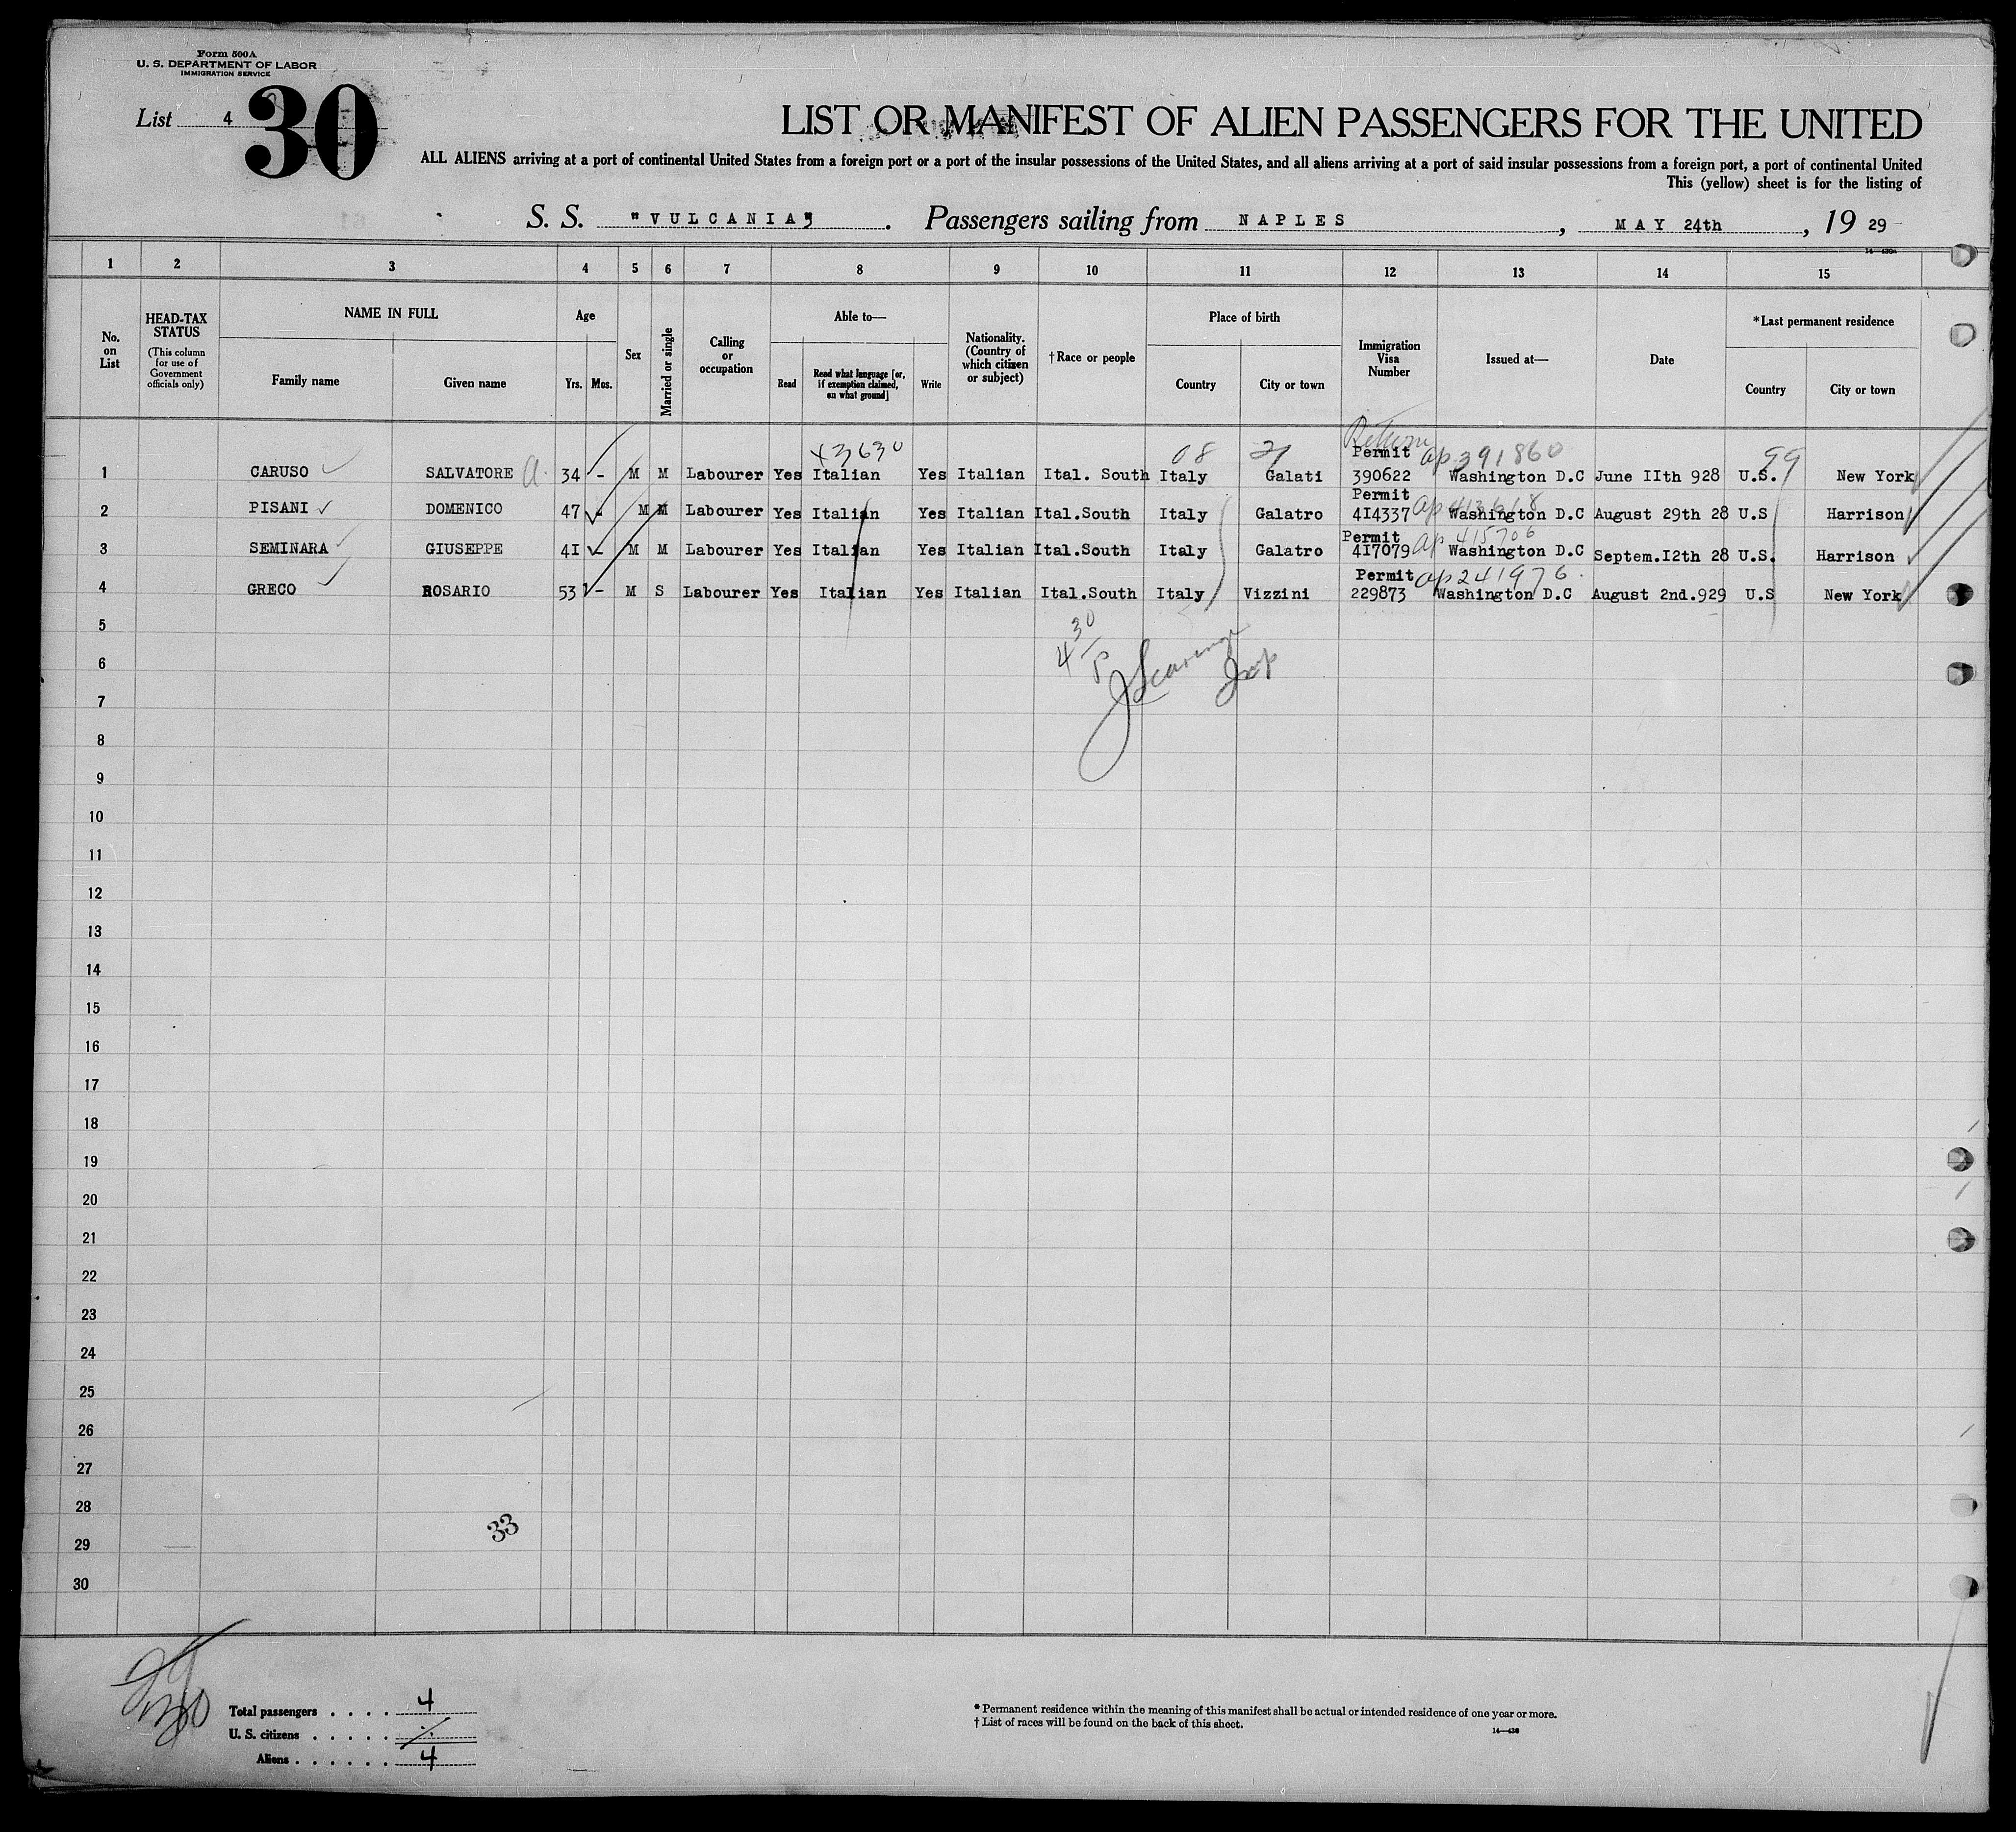 Form 500A
U. S. DEPARTMENT OF LABOR
IMMIGRATION SERVICE
List 4
30
LIST OR MANIFEST OF ALIEN PASSENGERS FOR THE UNITED
ALL ALIENS arriving at a port of continental United States from a foreign port or a port of the insular possessions of the United States, and all aliens arriving at a port of said insular possessions from a foreign port, a port of continental United
This (yellow) sheet is for the listing of
S. S. "VULCANIA". Passengers sailing from NAPLES, MAY 24th, 19 29
1 2 3 4 5 6 7 8 9 10 11 12 13 14 15
No. on List
HEAD-TAX STATUS
(This column for use of Government officials only)
NAME IN FULL
Family name
Given name
Age
Yrs. Mos.
Sex
Married or single
Calling or occupation
Able to—
Read
Read what language [or, if exemption claimed, on what ground]
Write
Nationality. (Country of which citizen or subject)
†Race or people
Place of birth
Country
City or town
Immigration Visa Number
Issued at—
Date
*Last permanent residence
Country
City or town
43630 08 21 Return 99
Permit ap 391860
1 CARUSO SALVATORE a 34 - M M Labourer Yes Italian Yes Italian Ital. South Italy Galati 390622 Washington D.C June IIth 928 U.S. New York
Permit ap 413618
2 PISANI DOMENICO 47 - M M Labourer Yes Italian Yes Italian Ital.South Italy Galatro 4I4337 Washington D.C August 29th 28 U.S Harrison
Permit ap 415706
3 SEMINARA GIUSEPPE 4I - M M Labourer Yes Italian Yes Italian Ital.South Italy Galatro 4I7079 Washington D.C Septem.I2th 28 U.S. Harrison
Permit ap 241976
4 GRECO ROSARIO 53 - M S Labourer Yes Italian Yes Italian Ital.South Italy Vizzini 229873 Washington D.C August 2nd.929 U.S New York
5
4 30 P
6
Insp
7
8
9
10
11
12
13
14
15
16
17
18
19
20
21
22
23
24
25
26
27
28
33
29
30
Total passengers . . . . 4
U. S. citizens . . . . .
Aliens . . . . . . 4
* Permanent residence within the meaning of this manifest shall be actual or intended residence of one year or more.
† List of races will be found on the back of this sheet.
14—430